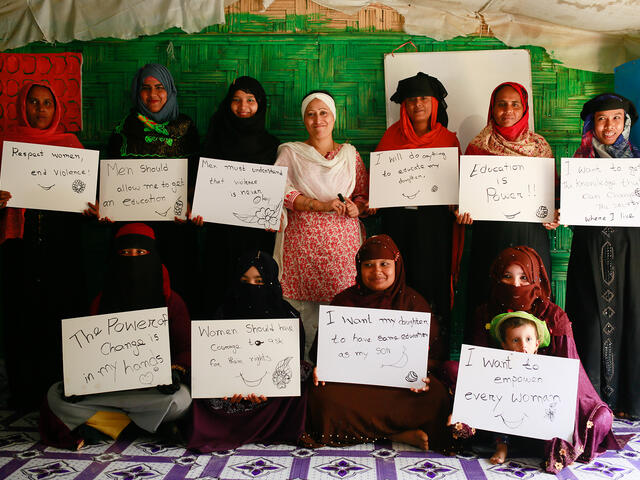 Respect women,
end violence!
Men should
allow me to get
an education
Men must understand
that violence
is never
Okay
I will do anything
to educate my
daughter.
Education
is
Power!!
I want to get
the knowledge that
can change
the society
where I live
The Power of
Change is
in my hands
Women Should have
Courage to ask
For their rights
I want my daughter
to have same education
as my son
I want to
empower
every woman